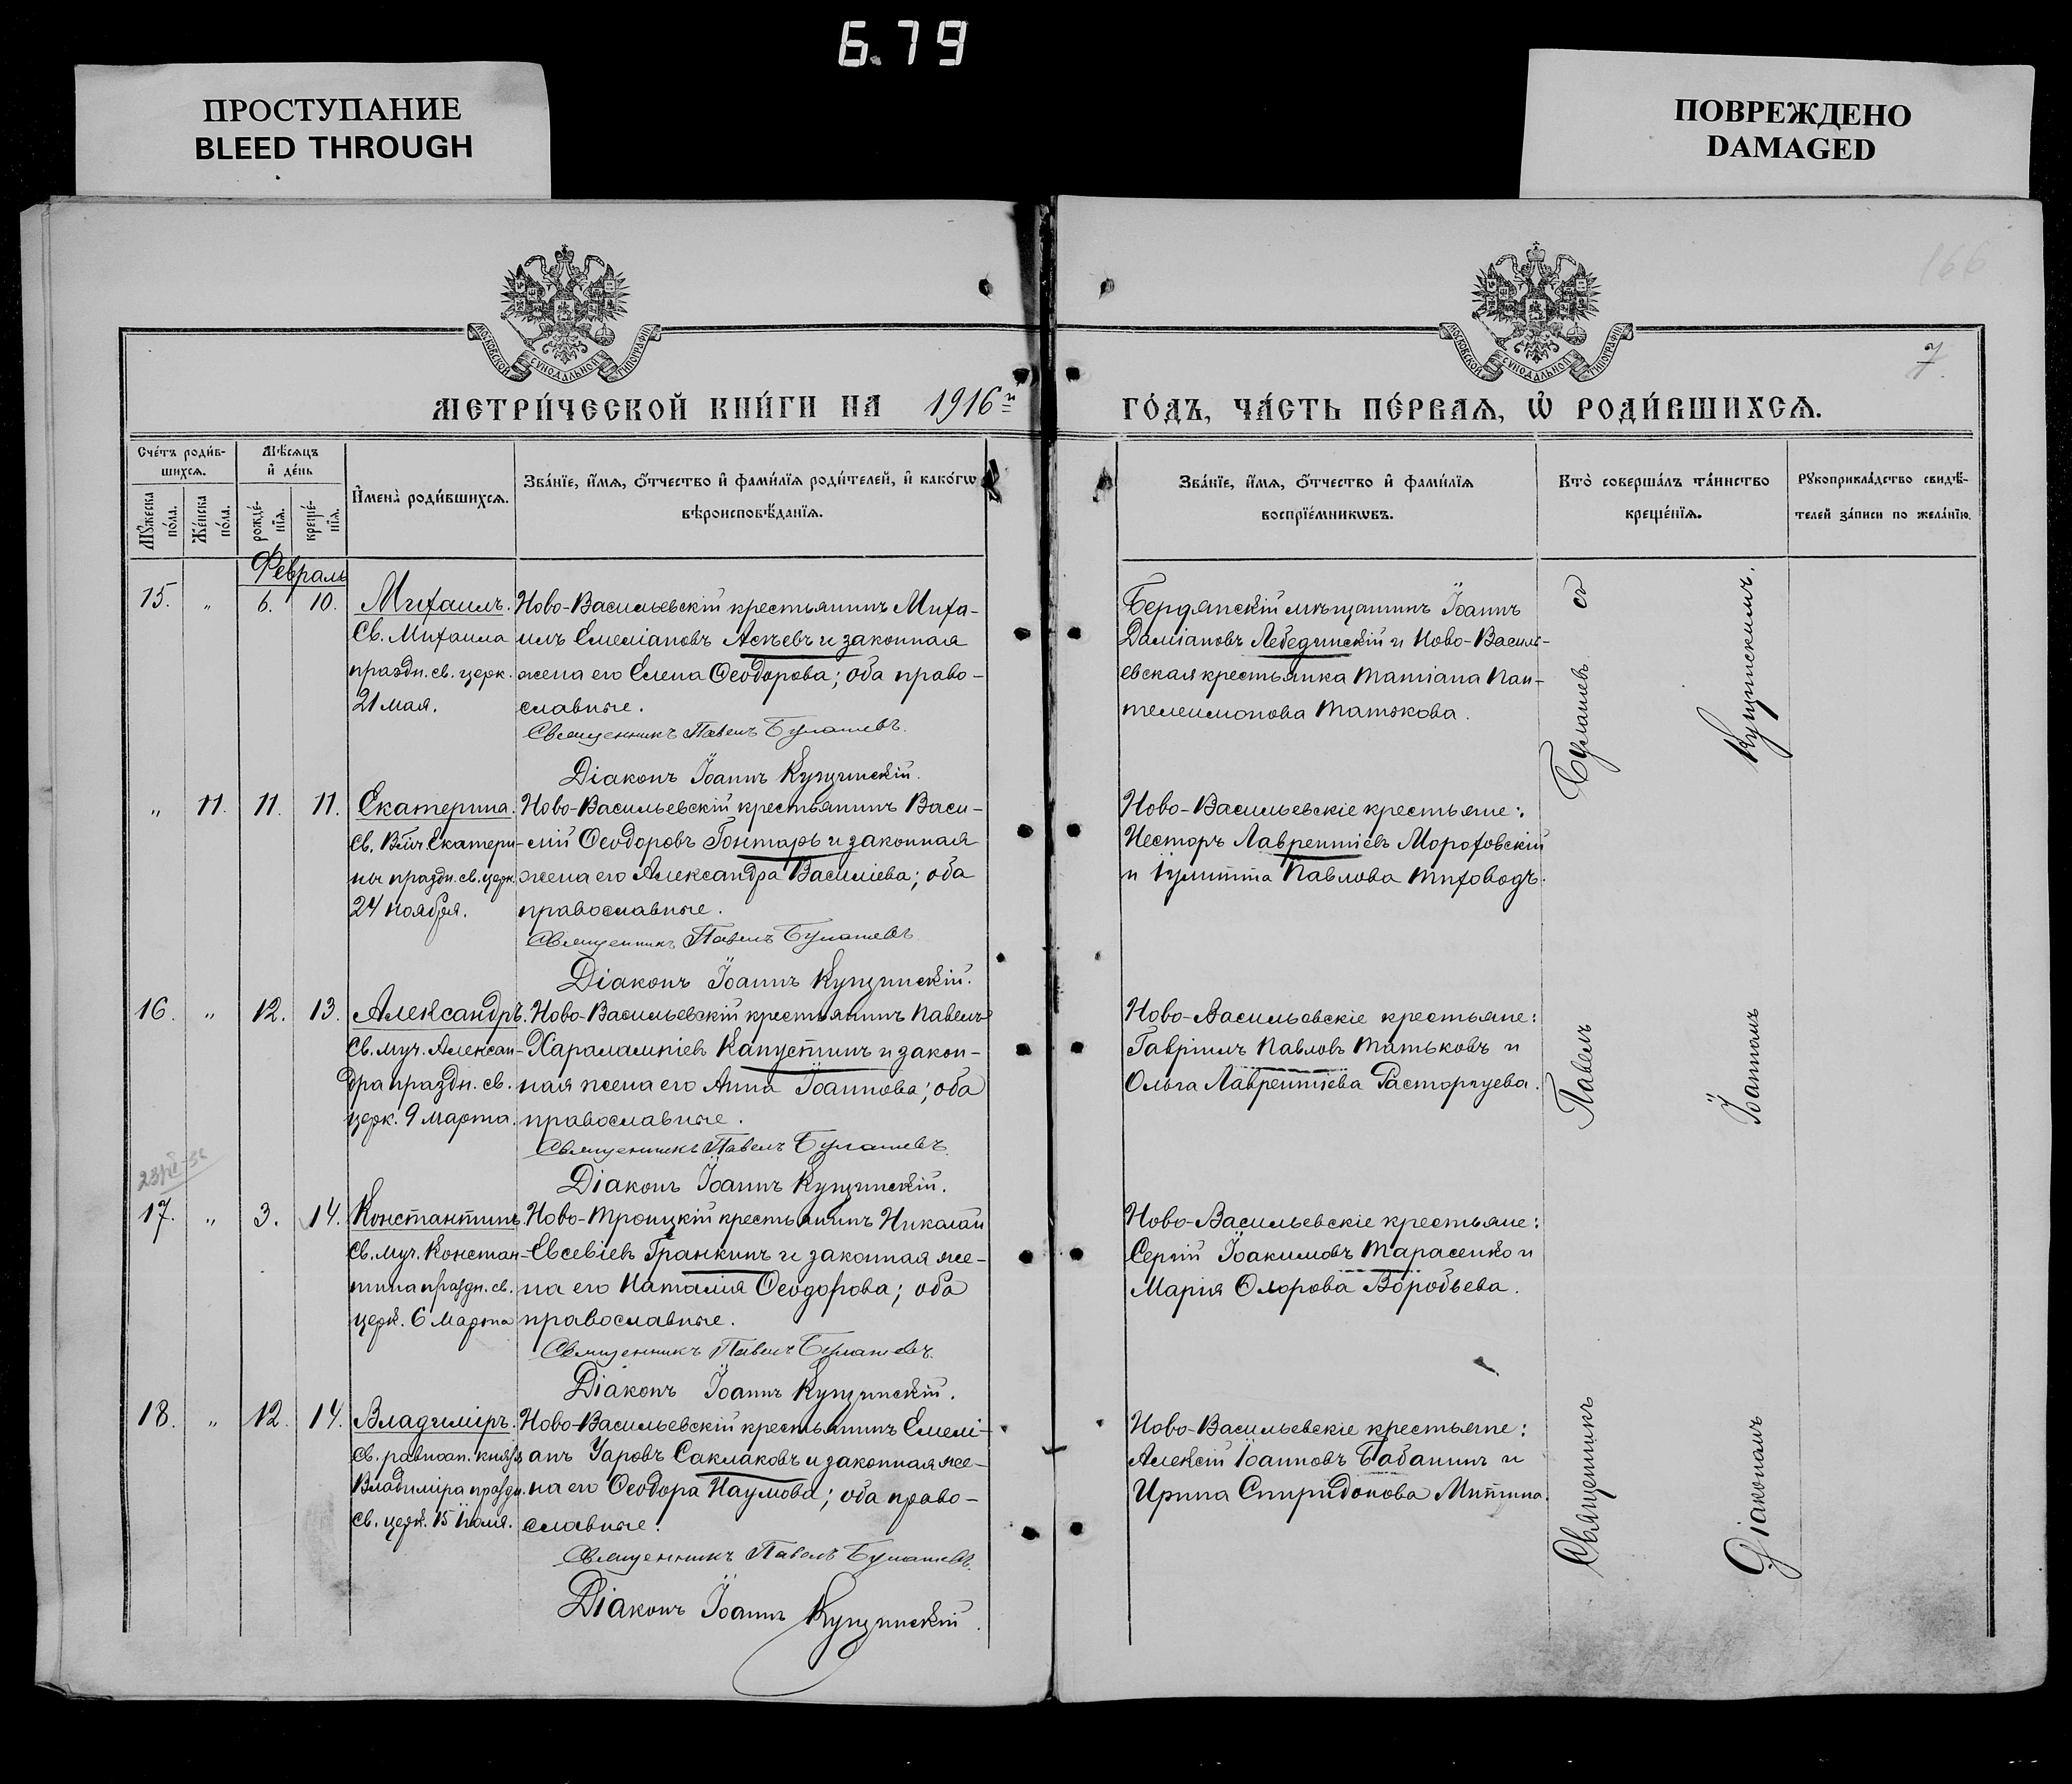 6.79
ПРОСТУПАНИЕ
BLEED THROUGH
ПОВРЕЖДЕНО
DAMAGED
166
МОСКОВСКОЙ СѴНОДАЛЬНОЙ ТИПОГРАФІИ
МОСКОВСКОЙ СѴНОДАЛЬНОЙ ТИПОГРАФІИ
7.
МЕТРИ́ЧЕСКОЙ КНИ́ГИ НА 1916й
ГО́ДЪ, ЧА́СТЬ ПЕ́РВАЯ, Ѡ РОДИ́ВШИХСЯ.
Сче́тъ роди́в-
шихся.
Мꙋ́жеска по́ла.
Же́нска по́ла.
Мѣ́сяцъ
и҆ де́нь
рожде́-
нїя.
креще́-
нїя.
И҆мена̀ роди́вшихся.
Зва́нїе, и҆́мя, ѻ҆́тчество и҆ фами́лїя роди́телей, и҆ како́гѡ
вѣроисповѣ́данїя.
Зва́нїе, и҆́мя, ѻ҆́тчество и҆ фами́лїя
воспрїе́мникѡвъ.
Кто̀ соверша́лъ та́инство
креще́нїя.
Рꙋкоприкла́дство свидѣ́-
телей за́писи по жела́нїю.
Февраль
15. " 6. 10.
Михаилъ.
Св. Михаила
праздн. св. церк.
21 мая.
Ново-Васильевскій крестьянинъ Миха-
илъ Емеліановъ Асѣевъ и законная
жена его Елена Ѳеодорова; оба право-
славные.
Священникъ Павелъ Булашевъ.
Діаконъ Іоаннъ Купчинскій.
Бердянскій мѣщанинъ Іоаннъ
Даміановъ Лебединскій и Ново-Василь-
евская крестьянка Татіана Пан-
телеимонова Татькова.
" 11. 11. 11.
Екатерина.
Св. Влмч. Екатери-
ны праздн. св. церк.
24 ноября.
Ново-Васильевскій крестьянинъ Васи-
лій Ѳеодоровъ Гонтарь и законная
жена его Александра Василіева; оба
православные.
Священникъ Павелъ Булашевъ
Діаконъ Іоаннъ Купчинскій.
Ново-Васильевскіе крестьяне:
Несторъ Лаврентіевъ Мороховскій
и Іулитта Павлова Тиховодъ.
16. " 12. 13.
Александръ.
Св. муч. Алексан-
дра праздн. св.
церк. 9 марта.
Ново-Васильевскій крестьянинъ Павелъ
Харалампіевъ Капустинъ и закон-
ная жена его Анна Іоаннова; оба
православные.
Священникъ Павелъ Булашевъ
Діаконъ Іоаннъ Купчинскій.
Ново-Васильевскіе крестьяне:
Гавріилъ Павловъ Татьковъ и
Ольга Лаврентіева Расторгуева.
17. " 3. 14.
Константинъ
Св. муч. Констан-
тина праздн. св.
церк. 6 марта
Ново-Троицкій крестьянинъ Николай
Евсевіевъ Гранкинъ и законная же-
на его Наталія Ѳеодорова; оба
православные.
Священникъ Павелъ Булашевъ.
Діаконъ Іоаннъ Купчинскій.
Ново-Васильевскіе крестьяне:
Сергій Іоакимовъ Тарасенко и
Марія Флорова Воробьева.
18. " 12. 14.
Владиміръ.
Св. равноап. князя
Владиміра праздн.
св. церк. 15 Іюля.
Ново-Васильевскій крестьянинъ Емелі-
анъ Уаровъ Саклаковъ и законная же-
на его Ѳеодора Наумова; оба право-
славные.
Священникъ Павелъ Булашевъ.
Діаконъ Іоаннъ Купчинскій.
Ново-Васильевскіе крестьяне:
Алексій Іоанновъ Бабанинъ и
Ирина Спиридонова Митина.
Священникъ Павелъ Булашевъ съ
Діакономъ Іоанномъ Купчинскимъ.